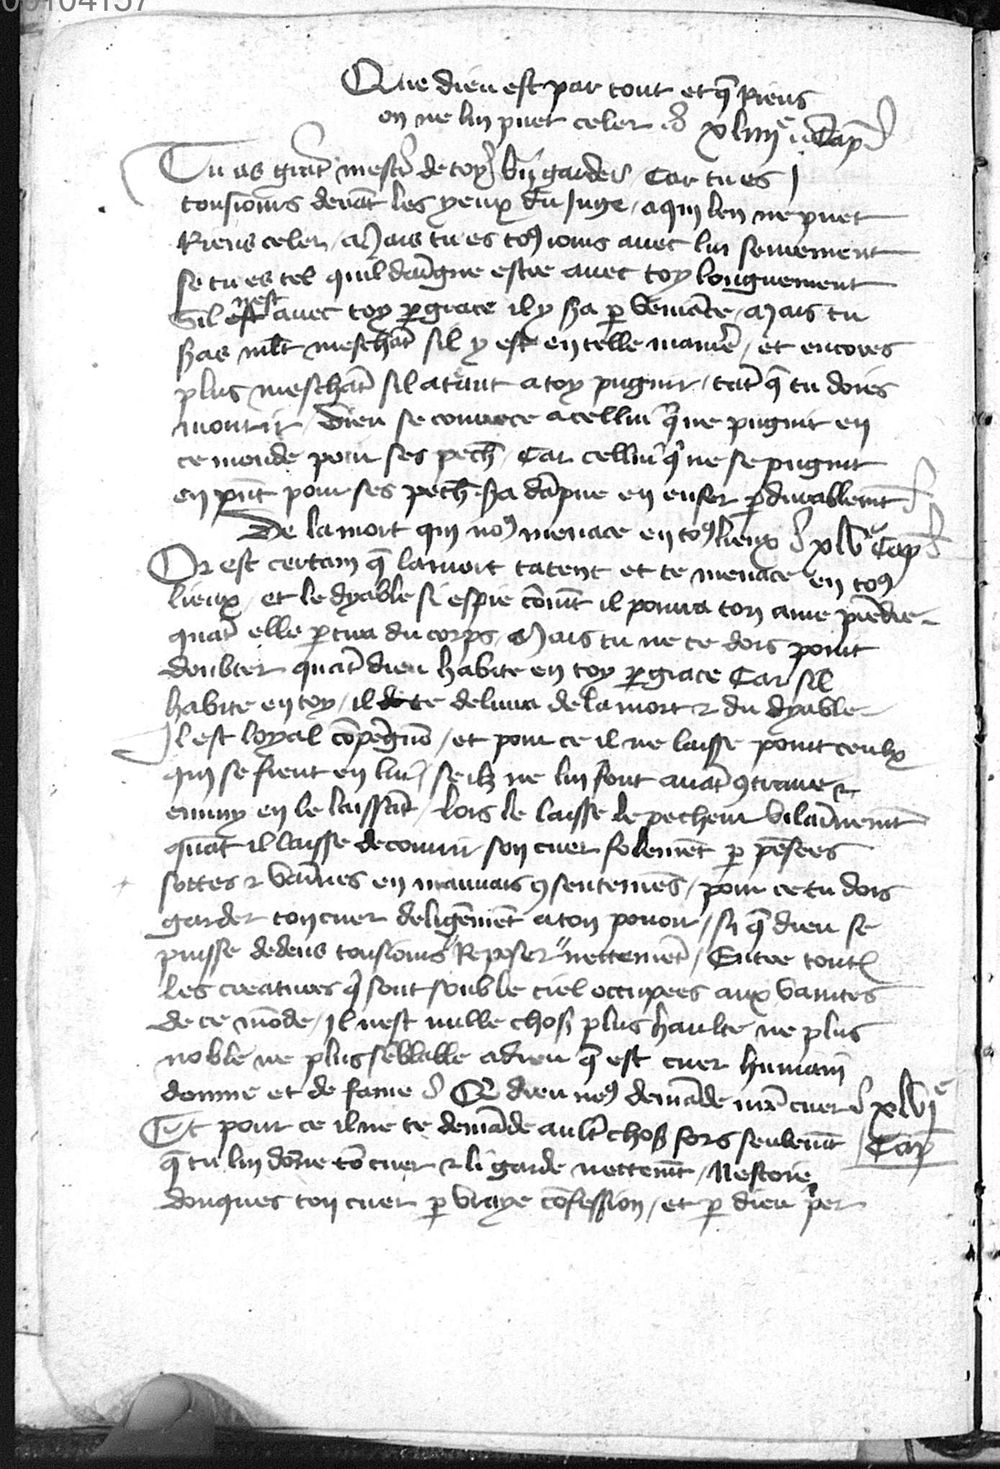 00104157
Que dieu est par tout et q̄ Riens
on ne luy puet celer xliiiie Cap
Tu as grāt mest̉ de toy bn̄ garder Car tu es
tousiours deuāt les yeux du Juge / a qui len ne puet
Riens celer / Mais tu es to9iours auec luy seurement
se tu es tel quil daīgne estre auec toy longuement
Sil nest auec toy ꝑ grace il y sa ꝑ Veniāce / Mais tu
sas mlt̄ meschāt sil y est en telle manie᷑ / et encores
plus meschāt sil atāut a toy pugnir / tāt q̄ tu dores
mourir / Dieu se courroce a celluy q̄ ne pugnit en
ce monde pour ses pech̄ / Car celluy q̄ ne se pugnit
en pn̄t pour ses pech̄ sa dāpne en enfer ꝑdurablemt̄
De la mort qui no9 menace en to9 lieux xlve Cap
Or est certain q̄ la mort tatent et te menace en to9
lieux / et le dyable si espie cōmt̄ il pourra ton ame prēdre
quāt elle ꝑtira du corps / Mais tu ne te dois point
doubter quāt dieu habite en toy ꝑ grace Car sil
habite en toy / il te deliura de la mort ⁊ du dyable
Il est loyal cōpēgnō / et pour ce il ne laisse point ceulx
qui se fient en luy / se ilz ne luy font auāt 9traire ⁊
ennuy en le laissāt / lors le laisse le pecheur Vilaīnemt̄
quāt il laisse decourir son cuer folemēt ꝑ pēsees
sottes ⁊ Vaīnes en mauuais 9sentemēs / pour ce tu dois
garder ton cuer deligēmēt a ton pouoir / si q̄ dieu se
puisse dedens tousiours Reposer nettemēt / Entre toutes
les creatures q̄ sont soubz le ciel occupees aux Vanites
de ce mōde / Il nest nulle chose plus haulte ne plus
noble ne plus sēblable a dieu q̄ est cuer humain
domme et de fame Q̄ dieu ne9 demāde nr̄e cuer xlvie
Et pour ce il ne te demāde ault̉ chose fors seulemt̄ Cap
q̄ tu luy dōne tō cuer ⁊ li garde nettemt̄ / Nestoie
donques ton cuer ꝑ vraye cōfession / et ꝑ dieu p̉er